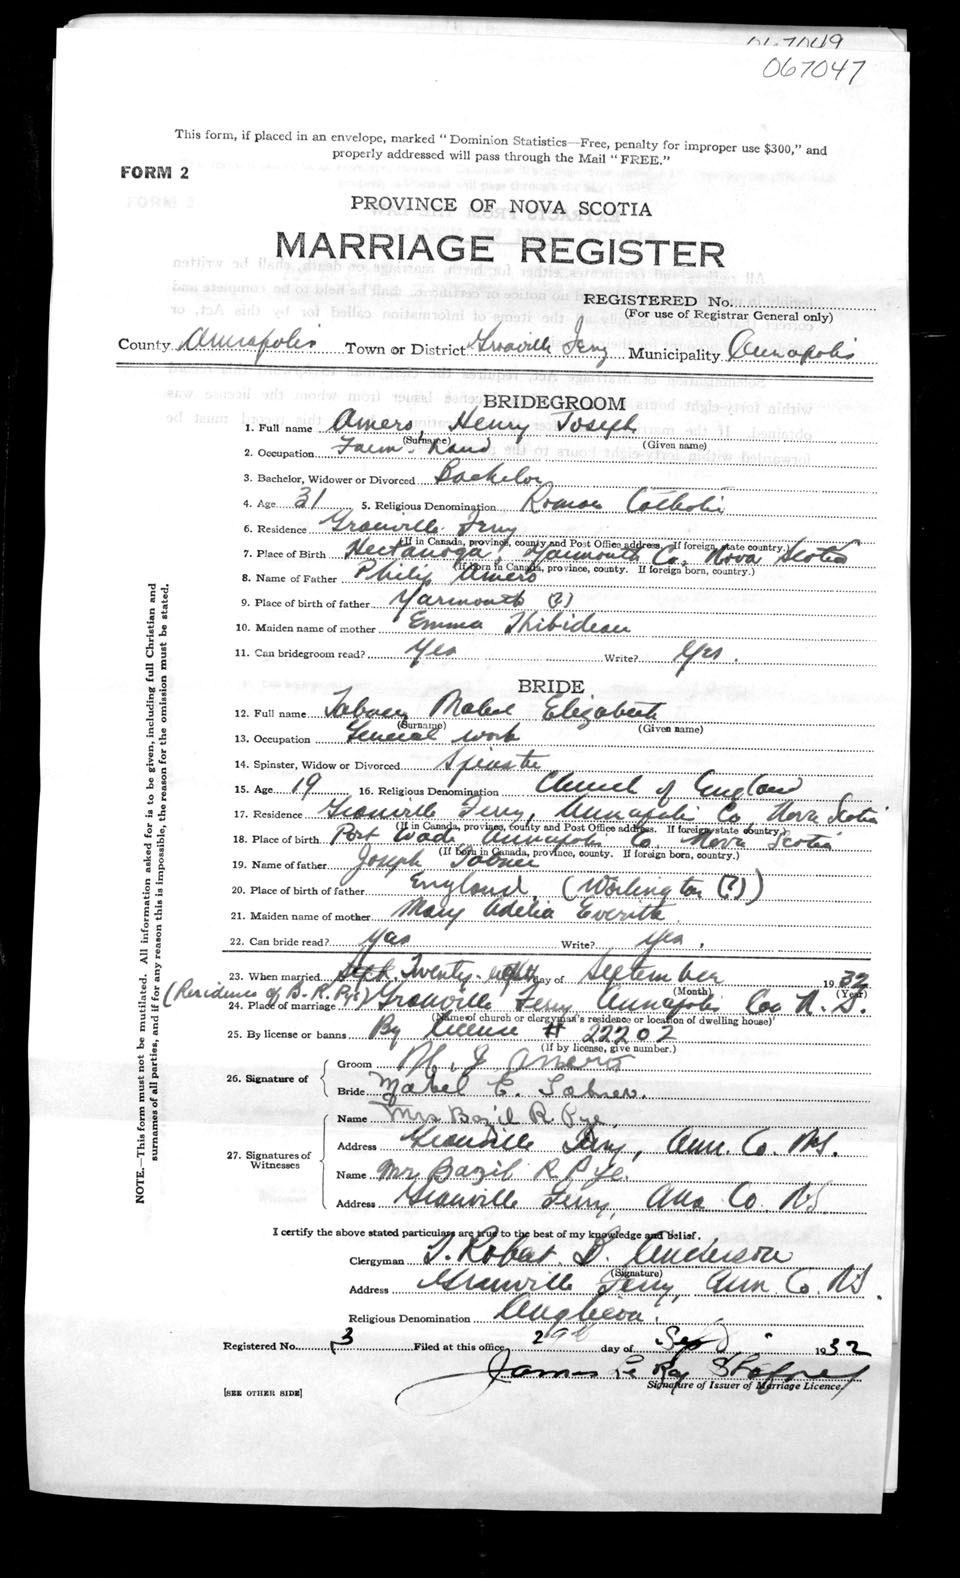 067049
067047
This form, if placed in an envelope, marked "Dominion Statistics—Free, penalty for improper use $300," and
properly addressed will pass through the Mail "FREE."
FORM 2
PROVINCE OF NOVA SCOTIA
MARRIAGE REGISTER
REGISTERED No.
(For use of Registrar General only)
County Annapolis Town or District Granville Ferry Municipality Annapolis
BRIDEGROOM
1. Full name Amero, Henry Joseph
(Surname) (Given name)
2. Occupation Farm Hand
3. Bachelor, Widower or Divorced Bachelor
4. Age 31 5. Religious Denomination Roman Catholic
6. Residence Granville Ferry
(If in Canada, province, county and Post Office address. If foreign, state country.)
7. Place of Birth Hectanooga, Yarmouth Co. Nova Scotia
(If born in Canada, province, county. If foreign born, country.)
8. Name of Father Philip Amero
9. Place of birth of father Yarmouth (?)
10. Maiden name of mother Emma Thibideau
11. Can bridegroom read? Yes Write? Yes.
BRIDE
12. Full name Mabel Elizabeth
(Surname) (Given name)
13. Occupation General work
14. Spinster, Widow or Divorced Spinster
15. Age 19 16. Religious Denomination Church of England
17. Residence Granville Ferry, Annapolis Co, Nova Scotia
(If in Canada, province, county and Post Office address. If foreign, state country.)
18. Place of birth Port Wade Annapolis Co, Nova Scotia
(If born in Canada, province, county. If foreign born, country.)
19. Name of father Joseph
20. Place of birth of father England, (Worlington (?))
21. Maiden name of mother Mary Adelia Everitt
22. Can bride read? Yes Write? Yes.
23. When married Sept. Twenty- day of September 1932
(Month) (Year)
(Residence of B. R. Pye)
24. Place of marriage Granville Ferry Annapolis Co. N.S.
(Name of church or clergyman's residence or location of dwelling house)
25. By license or banns By license # 22202
(If by license, give number.)
26. Signature of
Groom Amero
Bride Mabel E.
27. Signatures of Witnesses
Name Mrs Bazil R. Pye,
Address Granville Ferry, Ann. Co. N.S.
Name Mr. Bazil R. Pye.
Address Granville Ferry, Ann Co. N.S.
I certify the above stated particulars are true to the best of my knowledge and belief.
Clergyman Robert B. Anderson
(Signature)
Address Granville Ferry, Ann. Co. N.S.
Religious Denomination Anglican.
Registered No. 3 Filed at this office 29th day of Sept 1932
James Le Roy
Signature of Issuer of Marriage Licence
[SEE OTHER SIDE]
NOTE.—This form must not be mutilated. All information asked for is to be given, including full Christian and
surnames of all parties, and if for any reason this is impossible, the reason for the omission must be stated.